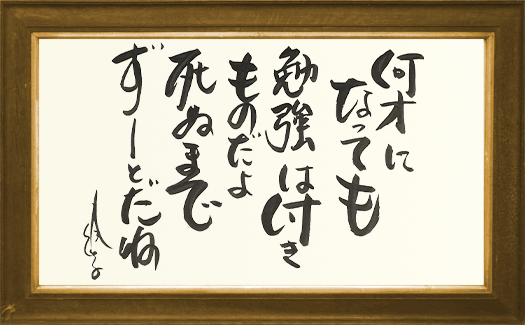 何才に
なっても
勉強は付き
ものだよ
死ぬまで
ずーとだね